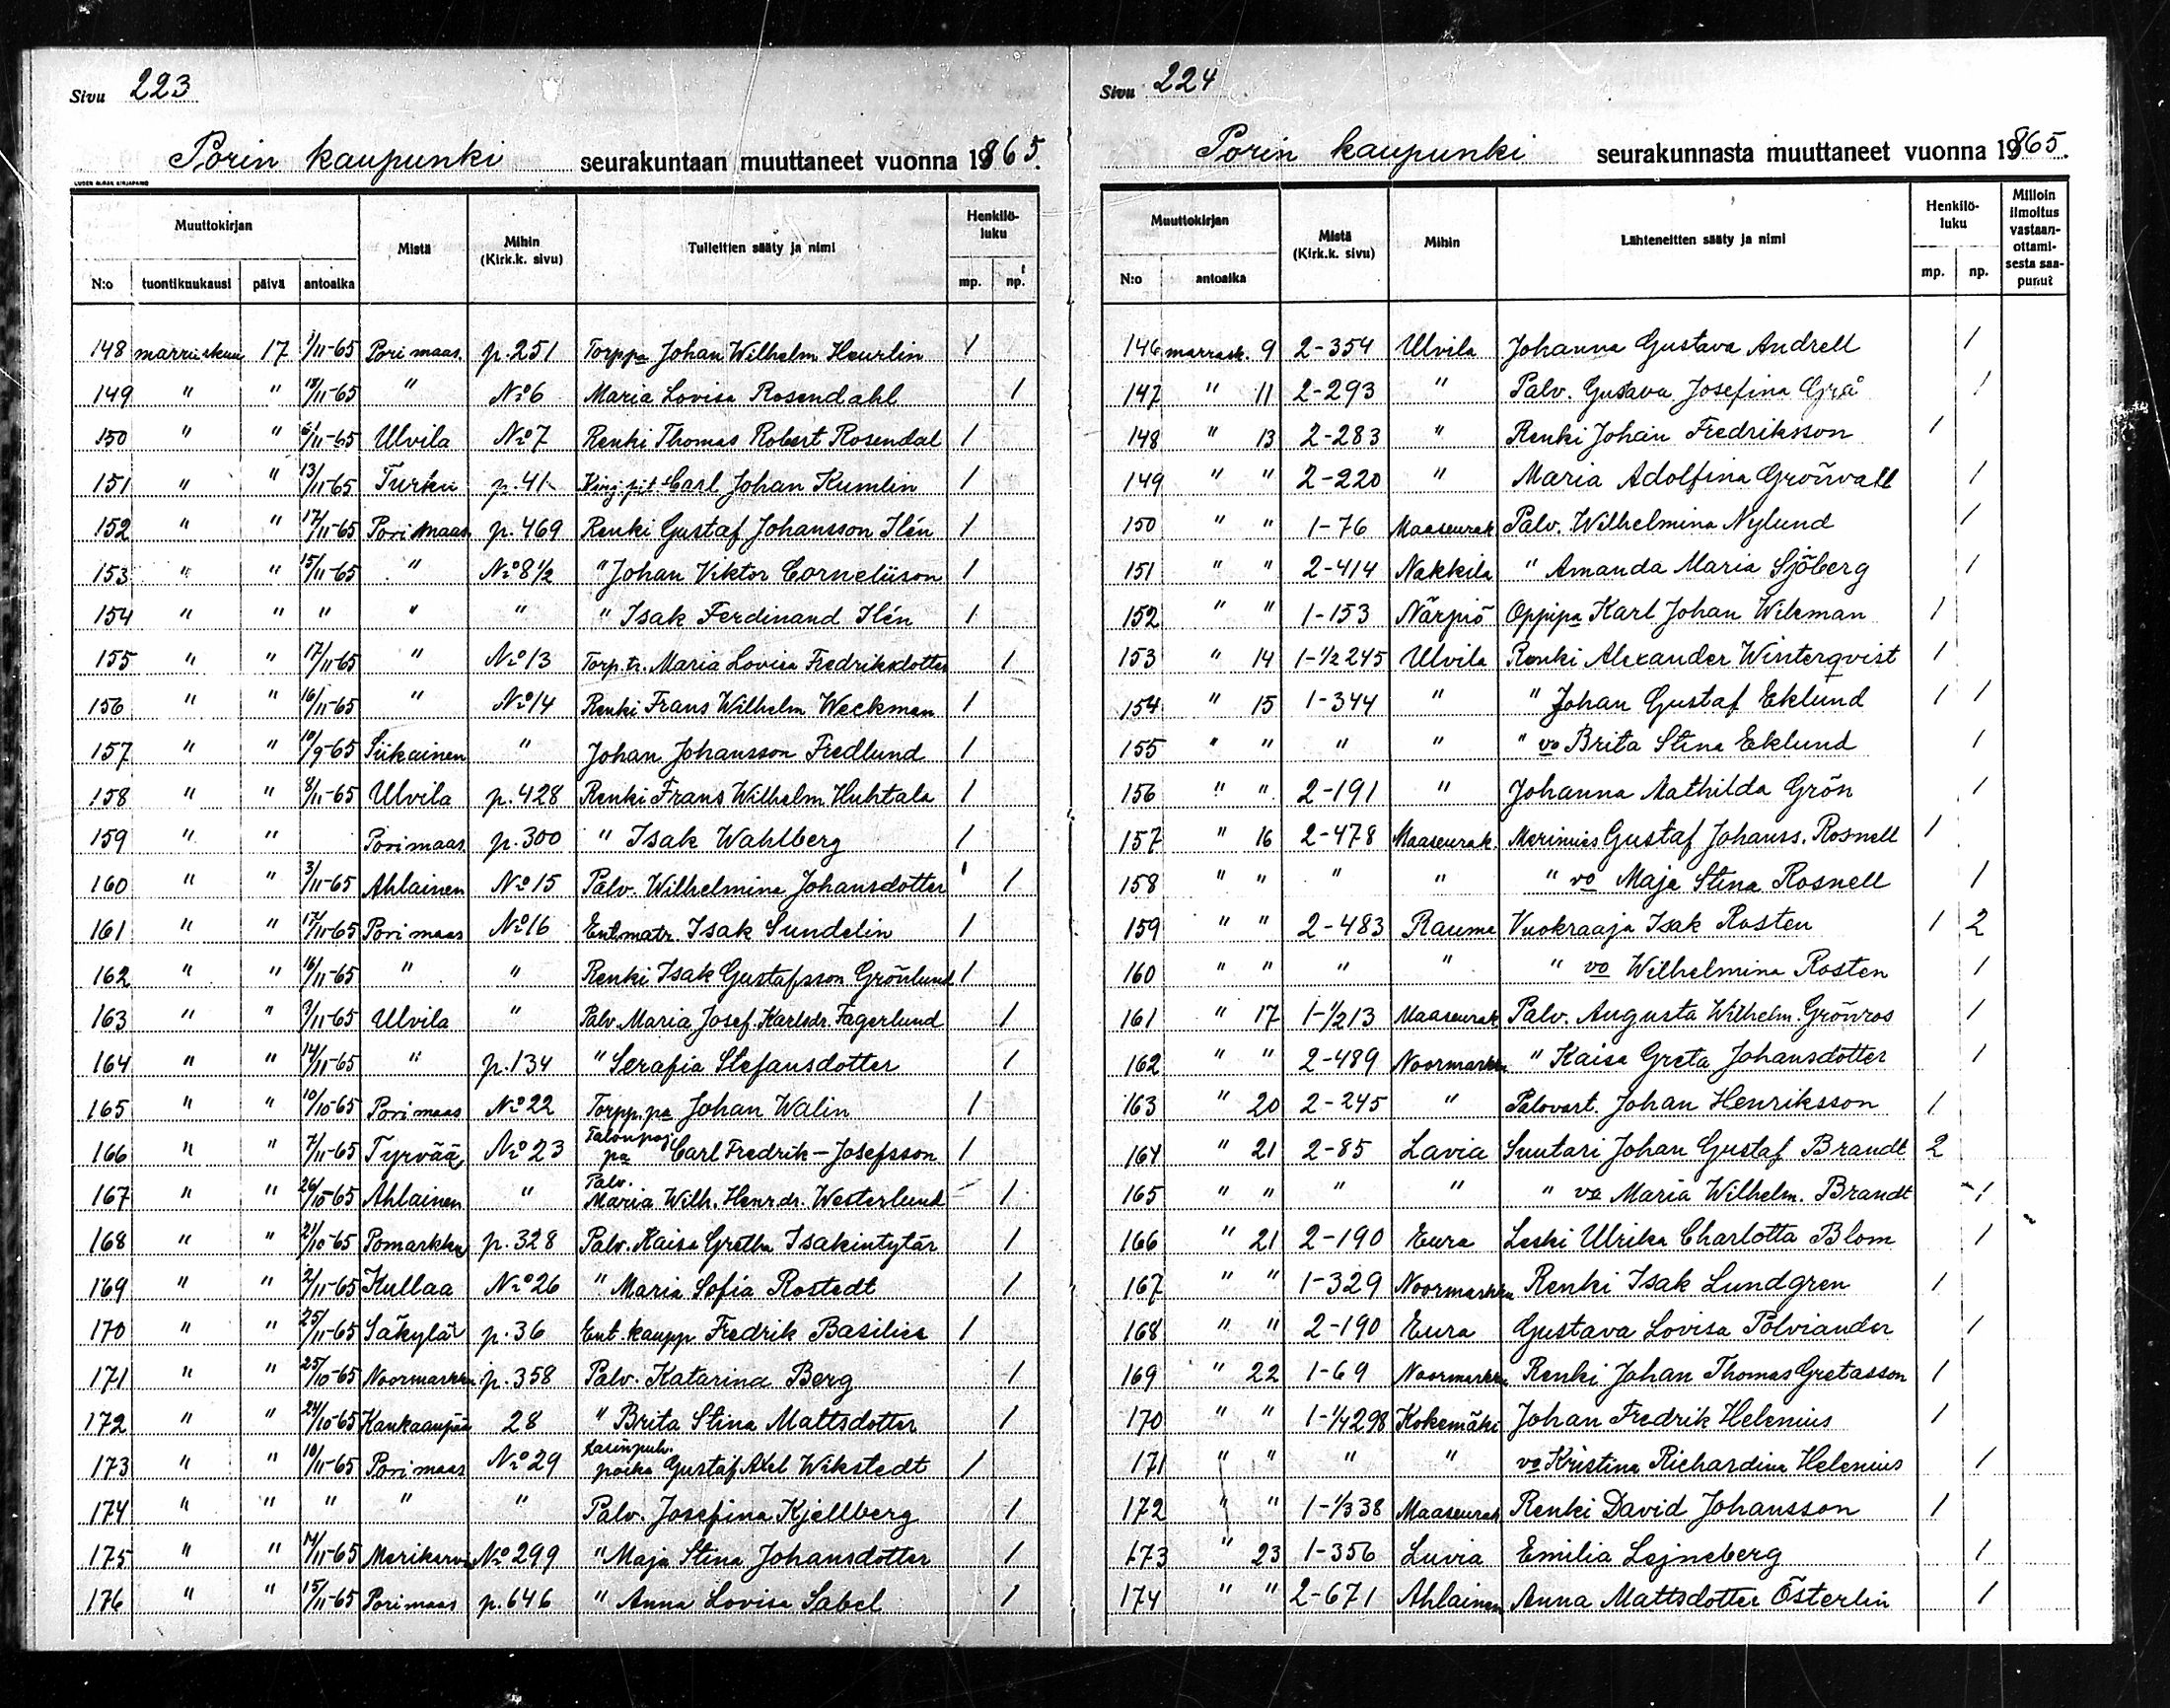 Sivu 223
Porin kaupunki seurakuntaan muuttaneet vuonna 1865.
Muuttokirjan Mistä Mihin (Kirk.k. sivu) Tulleitten sääty ja nimi Henkilö-luku
N:o tuontikuukausi päivä antoaika mp. np.
148 marraskuu 17 1/11-65 Porimaas. p.251 Torppa Johan Wilhelm Heurlin 1
149 " " 18/11-65 " No 6 Maria Lovisa Rosendahl 1
150 " " /11-65 Ulvila No 7 Renki Thomas Robert Rosendal 1
151 " " 13/11-65 Turku p.41 Carl Johan Kumlin 1
152 " " 17/11-65 Porimaas p.469 Renki Gustaf Johansson Ilén 1
153 " " 15/11-65 " No 8 1/2 " Johan Viktor Corneliison 1
154 " " " " " " Isak Ferdinand Ilén 1
155 " " 17/11-65 " No 13 Torp.tr. Maria Lovisa Fredriksdotter 1
156 " " 16/11-65 " No 14 Renki Frans Wilhelm Weckman 1
157 " " 10/9-65 Siikainen " Johan Johansson Fredlund 1
158 " " 8/11-65 Ulvila p.428 Renki Frans Wilhelm Huhtala 1
159 " " Porimaas p.300 " Isak Wahlberg 1
160 " " 3/11-65 Ahlainen No 15 Palv. Wilhelmina Johansdotter 1
161 " " 17/11-65 Porimaas No 16 Ent.matr. Isak Sundelin 1
162 " " 16/11-65 " " Renki Isak Gustafsson Grönlund 1
163 " " 3/11-65 Ulvila " Palv. Maria Josef. Karlsdr. Fagerlund 1
164 " " 14/11-65 " p.134 " Serafia Stefansdotter 1
165 " " 10/10-65 Porimaas No 22 Torpp.pa Johan Walin 1
166 " " 7/11-65 Tyrvää No 23 Talonpoj. pa Carl Fredrik - Josefsson 1
167 " " 26/10-65 Ahlainen " Palv. Maria Wilh. Henr.dr. Westerlund 1
168 " " 21/10-65 Pomarkku p.328 Palv. Kaisa Gretha Isakintytär 1
169 " " 2/11-65 Kullaa No 26 " Maria Sofia Rostedt 1
170 " " 25/11-65 Säkylä p.36 Ent. kaupp. Fredrik Basilier 1
171 " " 25/10-65 Noormarkku p.358 Palv. Katarina Berg 1
172 " " 24/10-65 Kankaanpää 28 " Brita Stina Mattsdotter 1
173 " " 10/11-65 Porimaas No 29 Lasinpuh. poika Gustaf Axel Wikstedt 1
174 " " " " " Palv. Josefina Kjellberg 1
175 " " 14/11-65 Merikarvia No 299 " Maja Stina Johansdotter 1
176 " " 15/11-65 Porimaas p.646 " Anna Lovisa Sabel 1
Sivu 224
Porin kaupunki seurakunnasta muuttaneet vuonna 1865.
Muuttokirjan Mistä (Kirk.k. sivu) Mihin Lähteneitten sääty ja nimi Henkilö-luku Milloin ilmoitus vastaan-ottami-sesta saa-punut
N:o antoaika mp. np.
146 marrask. 9 2-354 Ulvila Johanna Gustava Andrell 1
147 " 11 2-293 " Palv. Gustava Josefina Grå 1
148 " 13 2-283 " Renki Johan Fredriksson 1
149 " " 2-220 " Maria Adolfina Grönvall 1
150 " " 1-76 Maaseurak Palv. Wilhelmina Nylund 1
151 " " 2-414 Nakkila " Amanda Maria Sjöberg 1
152 " " 1-153 Närpiö Oppipa Karl Johan Wikman 1
153 " 14 1-1/2 245 Ulvila Renki Alexander Winterqvist 1
154 " 15 1-344 " " Johan Gustaf Eklund 1 1
155 " " " " " vo Brita Stina Eklund 1
156 " " 2-191 " Johanna Mathilda Grön 1
157 " 16 2-478 Maaseurak. Merimies Gustaf Johanss. Rosnell 1
158 " " " " " vo Maja Stina Rosnell 1
159 " " 2-483 Rauma Vuokraaja Isak Rosten 1 2
160 " " " " " vo Wilhelmina Rosten 1
161 " 17 1-1/2 13 Maaseurak Palv. Augusta Wilhelm. Grönros 1
162 " " 2-489 Noormarkku " Kaisa Greta Johansdotter 1
163 " 20 2-245 " Palovart. Johan Henriksson 1
164 " 21 2-85 Lavia Suutari Johan Gustaf Brandt 2
165 " " " " " vo Maria Wilhelm. Brandt 1
166 " 21 2-190 Eura Leski Ulrika Charlotta Blom 1
167 " " 1-329 Noormarkku Renki Isak Lundgren 1
168 " " 2-190 Eura Gustava Lovisa Polviander 1
169 " 22 1-69 Noormarkku Renki Johan Thomas Gretasson 1
170 " " 1-1/4 298 Kokemäki Johan Fredrik Helenius 1
171 " " " " vo Kristina Richardina Helenius 1
172 " " 1-1/3 38 Maaseurak Renki David Johansson 1
173 " 23 1-356 Luvia Emilia Lejneberg 1
174 " " 2-671 Ahlainen Anna Mattsdotter Österlin 1